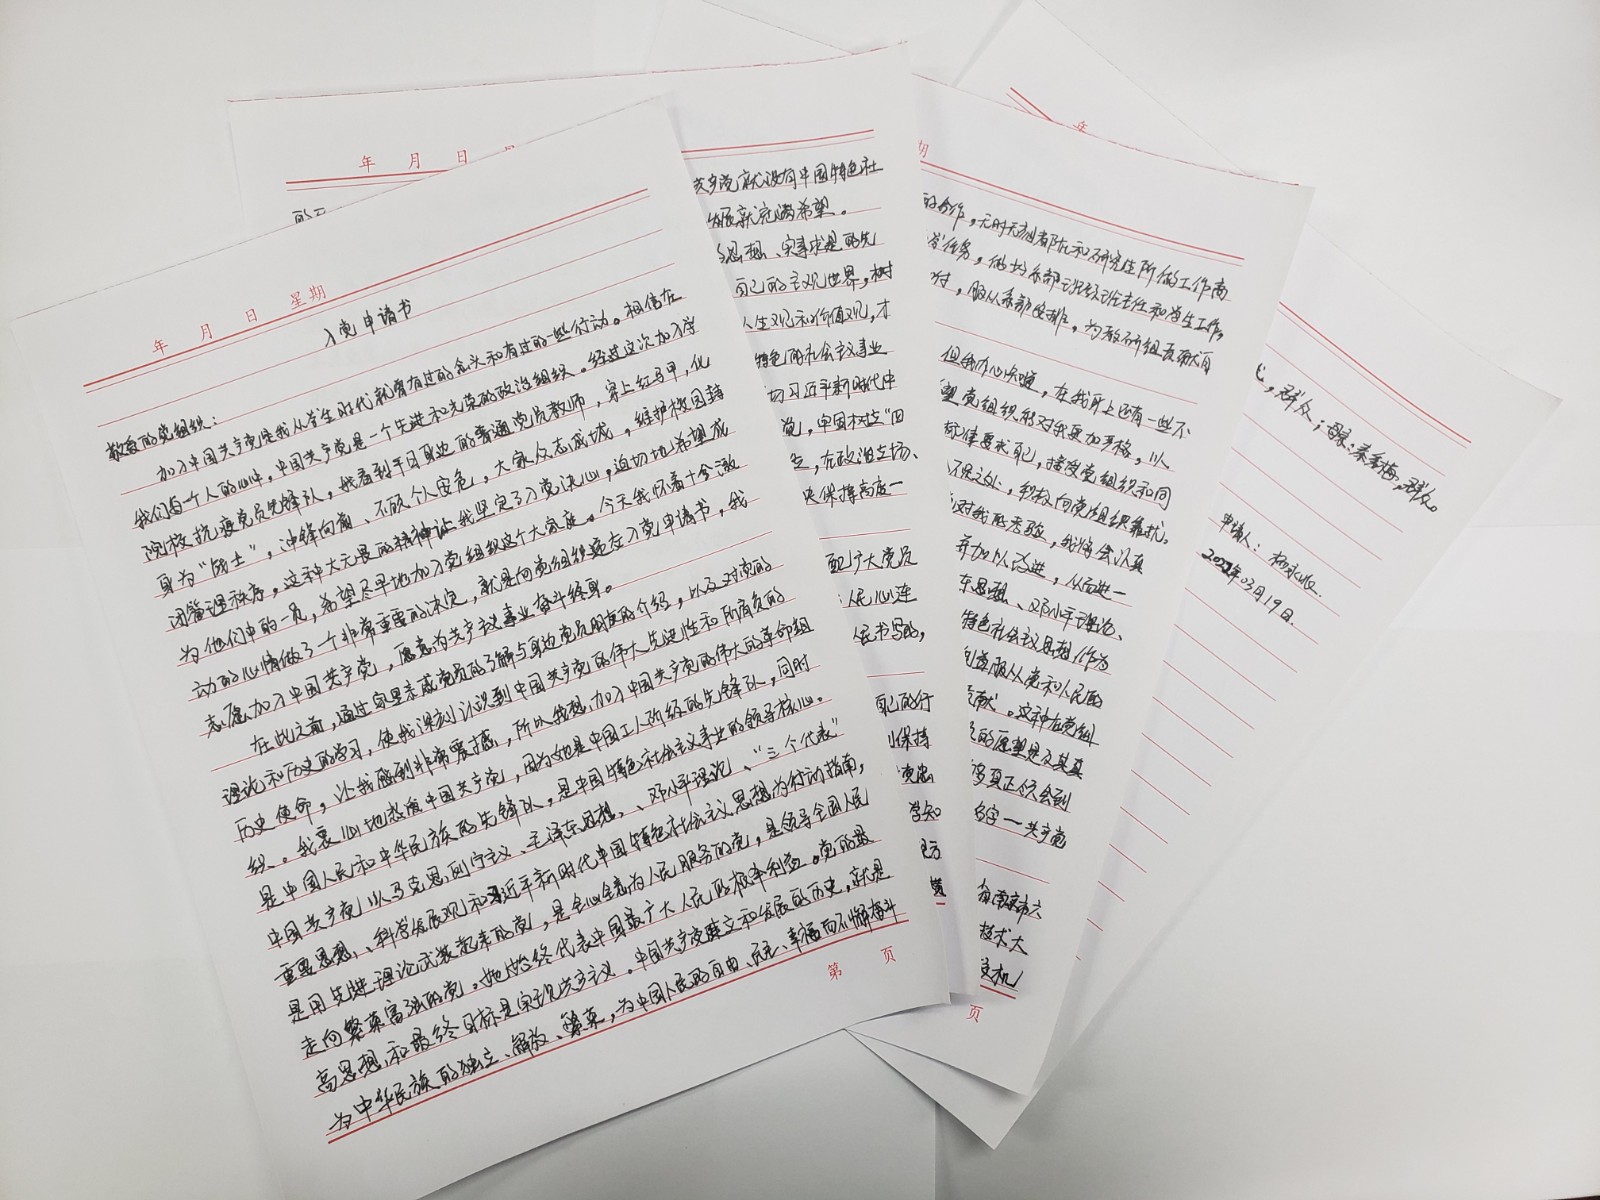 年 月 日 星期
入党申请书
敬爱的党组织：
加入中国共产党是我从学生时代就曾有过的念头和有过的一些行动。相信在
我们每一个人的心中，中国共产党是一个先进和光荣的政治组织。经过这次加入学
院校抗疫党员先锋队，我看到平日身边的普通党员教师，穿上红马甲，化
身为“战士”，冲锋向前、不顾个人安危，大家众志成城，维护校园封
闭管理秩序。这种大无畏的精神让我坚定了入党决心，迫切地希望成
为他们中的一员，希望尽早地加入党组织这个大家庭。今天我怀着十分激
动的心情做了一个非常重要的决定，就是向党组织递交入党申请书，我
志愿加入中国共产党，愿意为共产主义事业奋斗终身。
在此之前，通过家里亲戚党员的了解与身边党员朋友的介绍，以及对党的
理论和历史的学习，使我深刻认识到中国共产党的伟大先进性和所肩负的
历史使命，让我感到非常震撼，所以我想加入中国共产党的伟大的革命组
织。我衷心地热爱中国共产党，因为她是中国工人阶级的先锋队，同时
是中国人民和中华民族的先锋队，是中国特色社会主义事业的领导核心。
中国共产党以马克思列宁主义、毛泽东思想、邓小平理论、“三个代表”
重要思想、科学发展观和习近平新时代中国特色社会主义思想为行动指南，
是用先进理论武装起来的党，是全心全意为人民服务的党，是领导全国人民
走向繁荣富强的党。她始终代表中国最广大人民的根本利益。党的最
高思想和最终目标是实现共产主义。中国共产党建立和发展的历史，就是
为中华民族的独立、解放、繁荣，为中国人民的自由、民主、幸福而不懈奋斗
第 页
年 月 日
共产党就没有中国特色社
发展就充满希望。
思想、实事求是的先
自己的主观世界，树
人生观和价值观，才
特色的社会主义事业
习近平新时代中
党，中国树立“四
，在政治立场、
央保持高度一
广大党员
人民心连
民书写的，
己的行
保持
学知
期
的合作，无时无刻都在和研究生所做的工作商
任务，他均系部班级班主任和学生工作。
时，服从系部安排，为教研组贡献自
但我内心知道，在我身上还有一些不
望党组织能对我更加严格，以
标准要求自己，接受党组织和同
不足之处，积极向党组织靠拢。
对我的考验，我将会认真
并加以改进，从而进一
东思想、邓小平理论、
特色社会主义思想作为
服从党和人民的
献。这种在党组
的愿望是及其真
够真正体会到
名字一共产党
南京市六
技术大
页
年
，群众；母亲：秦香梅，群众。
申请人：
03月19日.